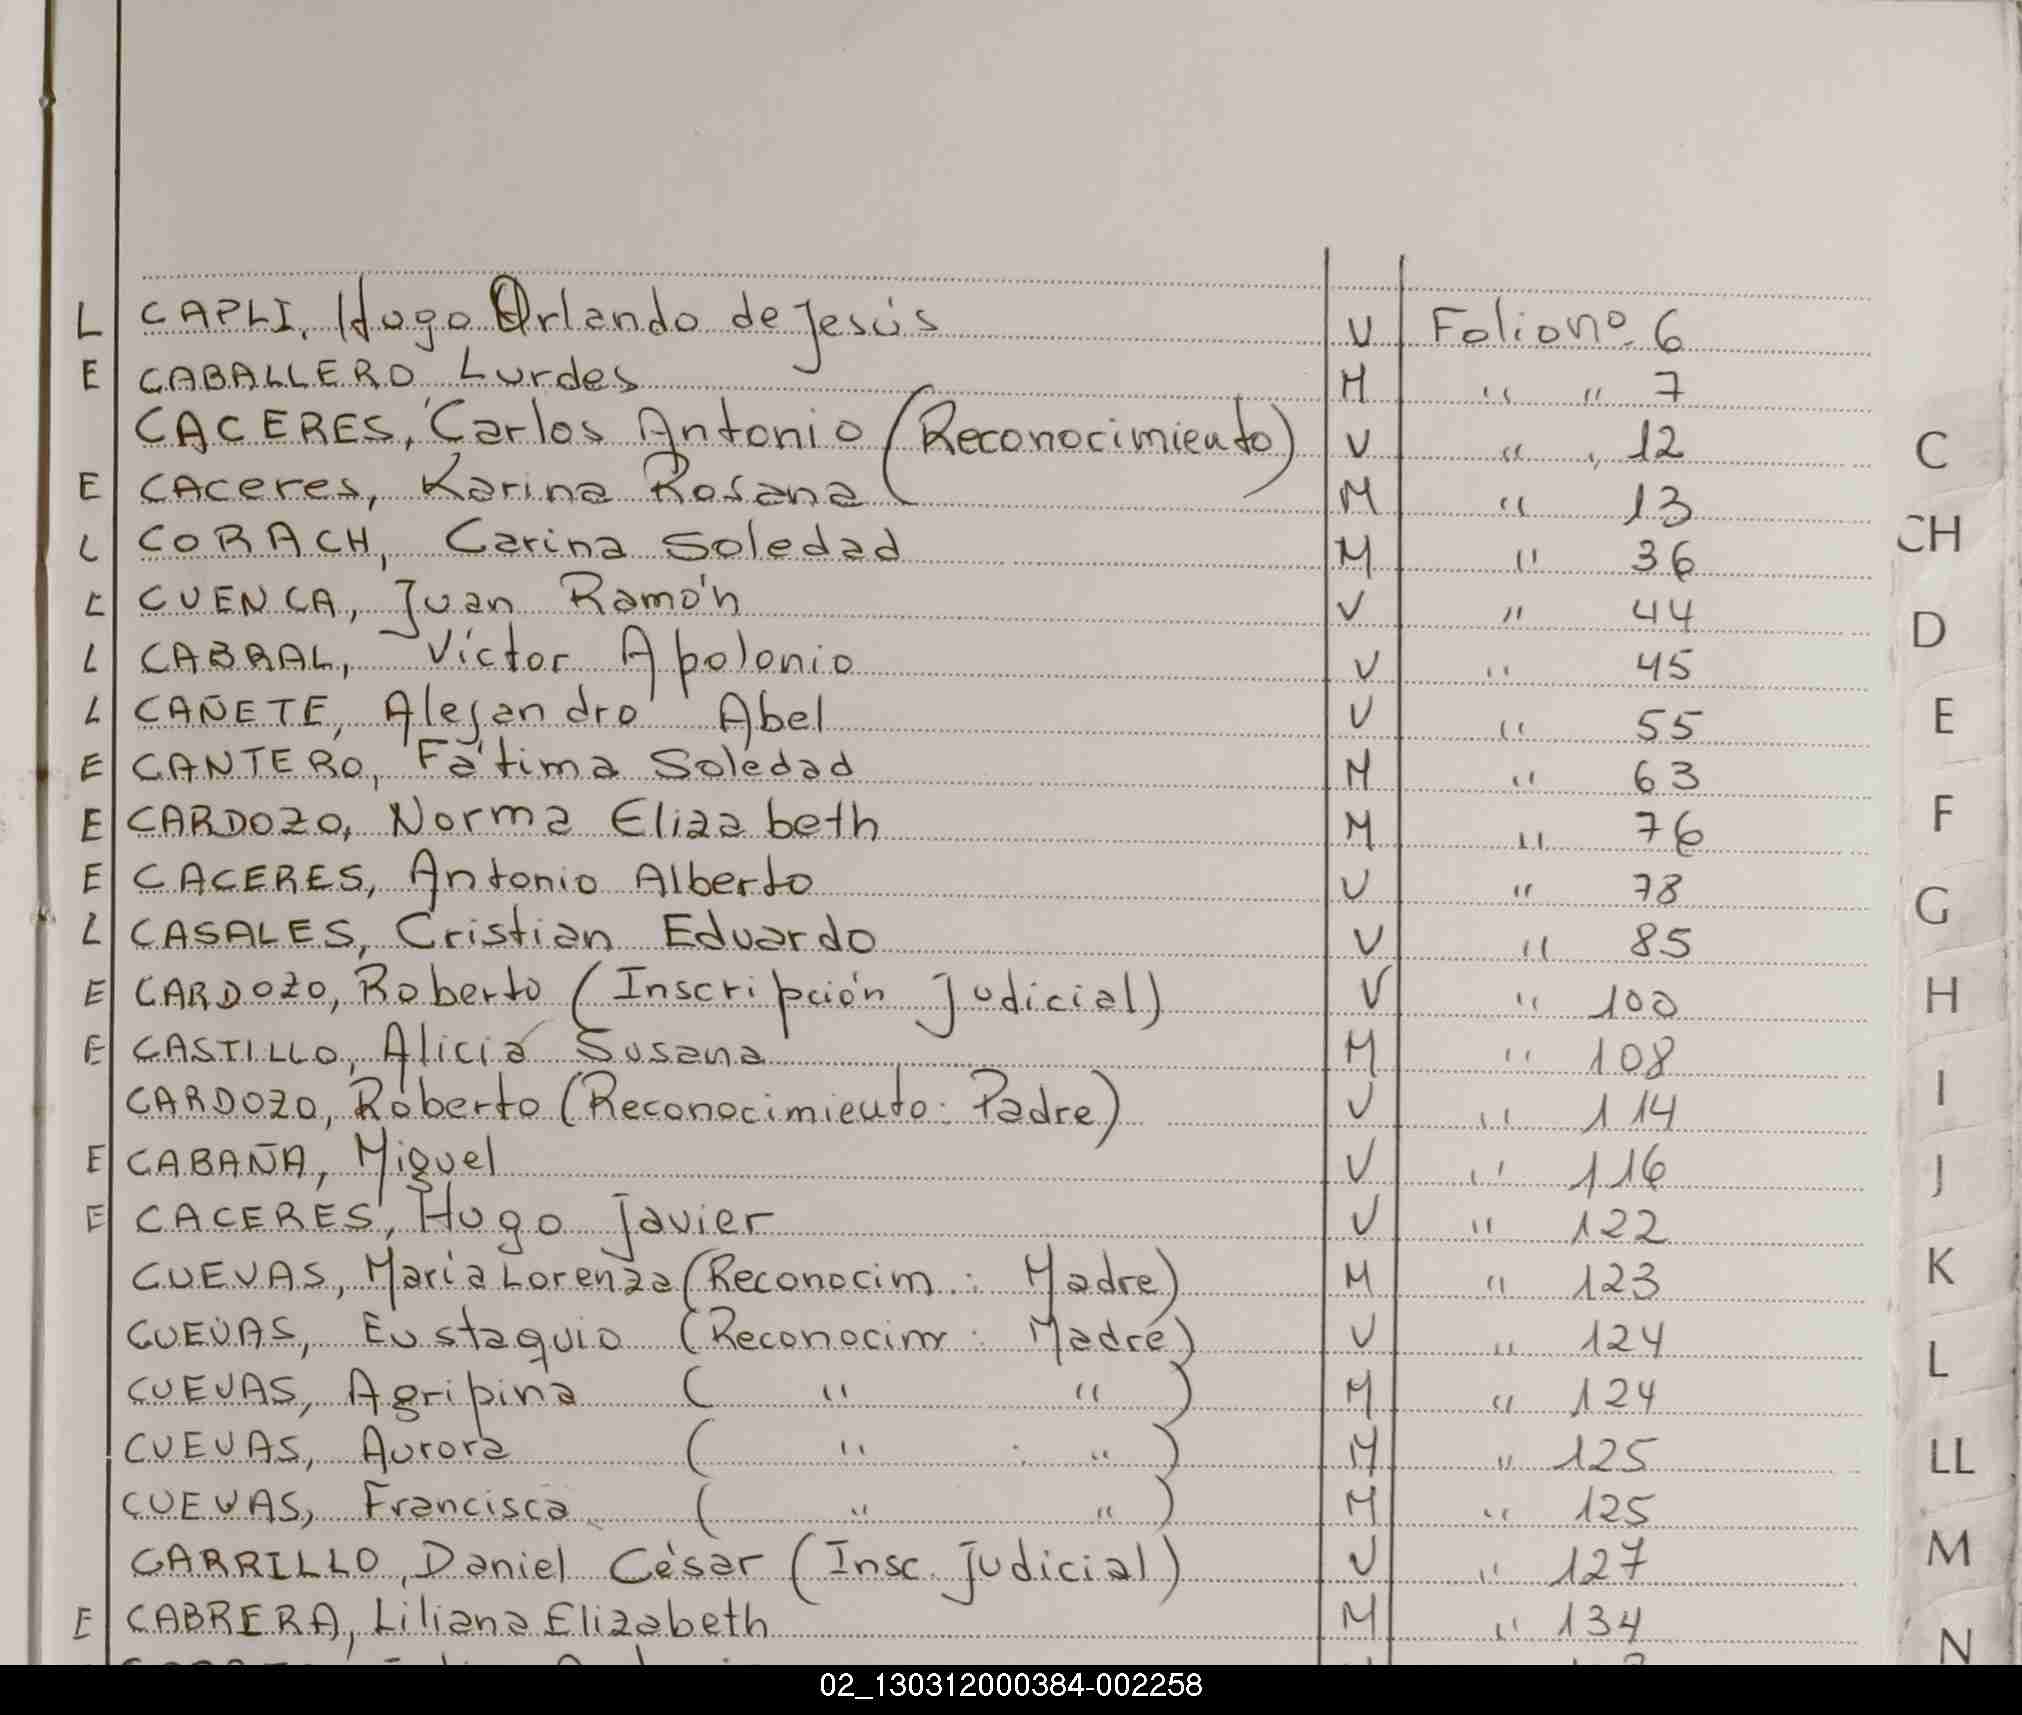 L CAPLI, Hugo Orlando de Jesús V Folio nº 6
E CABALLERO, Lurdes M " " 7
CACERES, Carlos Antonio (Reconocimiento) V " " 12
E CACeres, Karina Rosana M " 13
L CORACH, Carina Soledad M " 36
L CUENCA, Juan Ramón V " 44
L CABRAL, Víctor Apolonio V " 45
L CAÑETE, Alejandro Abel V " 55
E CANTERO, Fátima Soledad M " 63
E CARDOZO, Norma Elizabeth M " 76
E CACERES, Antonio Alberto V " 78
L CASALES, Cristian Eduardo V " 85
E CARDOZO, Roberto (Inscripción Judicial) V " 100
E CASTILLO, Alicia Susana M " 108
CARDOZO, Roberto (Reconocimiento: Padre) V " 114
E CABAÑA, Miguel V " 116
E CACERES, Hugo Javier V " 122
CUEVAS, María Lorenza (Reconocim.: Madre) M " 123
CUEVAS, Eustaquio (Reconocim: Madre) V " 124
CUEVAS, Agripina ( " " ) M " 124
CUEVAS, Aurora ( " : " ) M " 125
CUEVAS, Francisca ( " " ) M " 125
CARRILLO, Daniel César (Insc. Judicial) V " 127
E CABRERA, Liliana Elizabeth M " 134
C
CH
D
E
F
G
H
I
J
K
L
LL
M
N
02_130312000384-002258